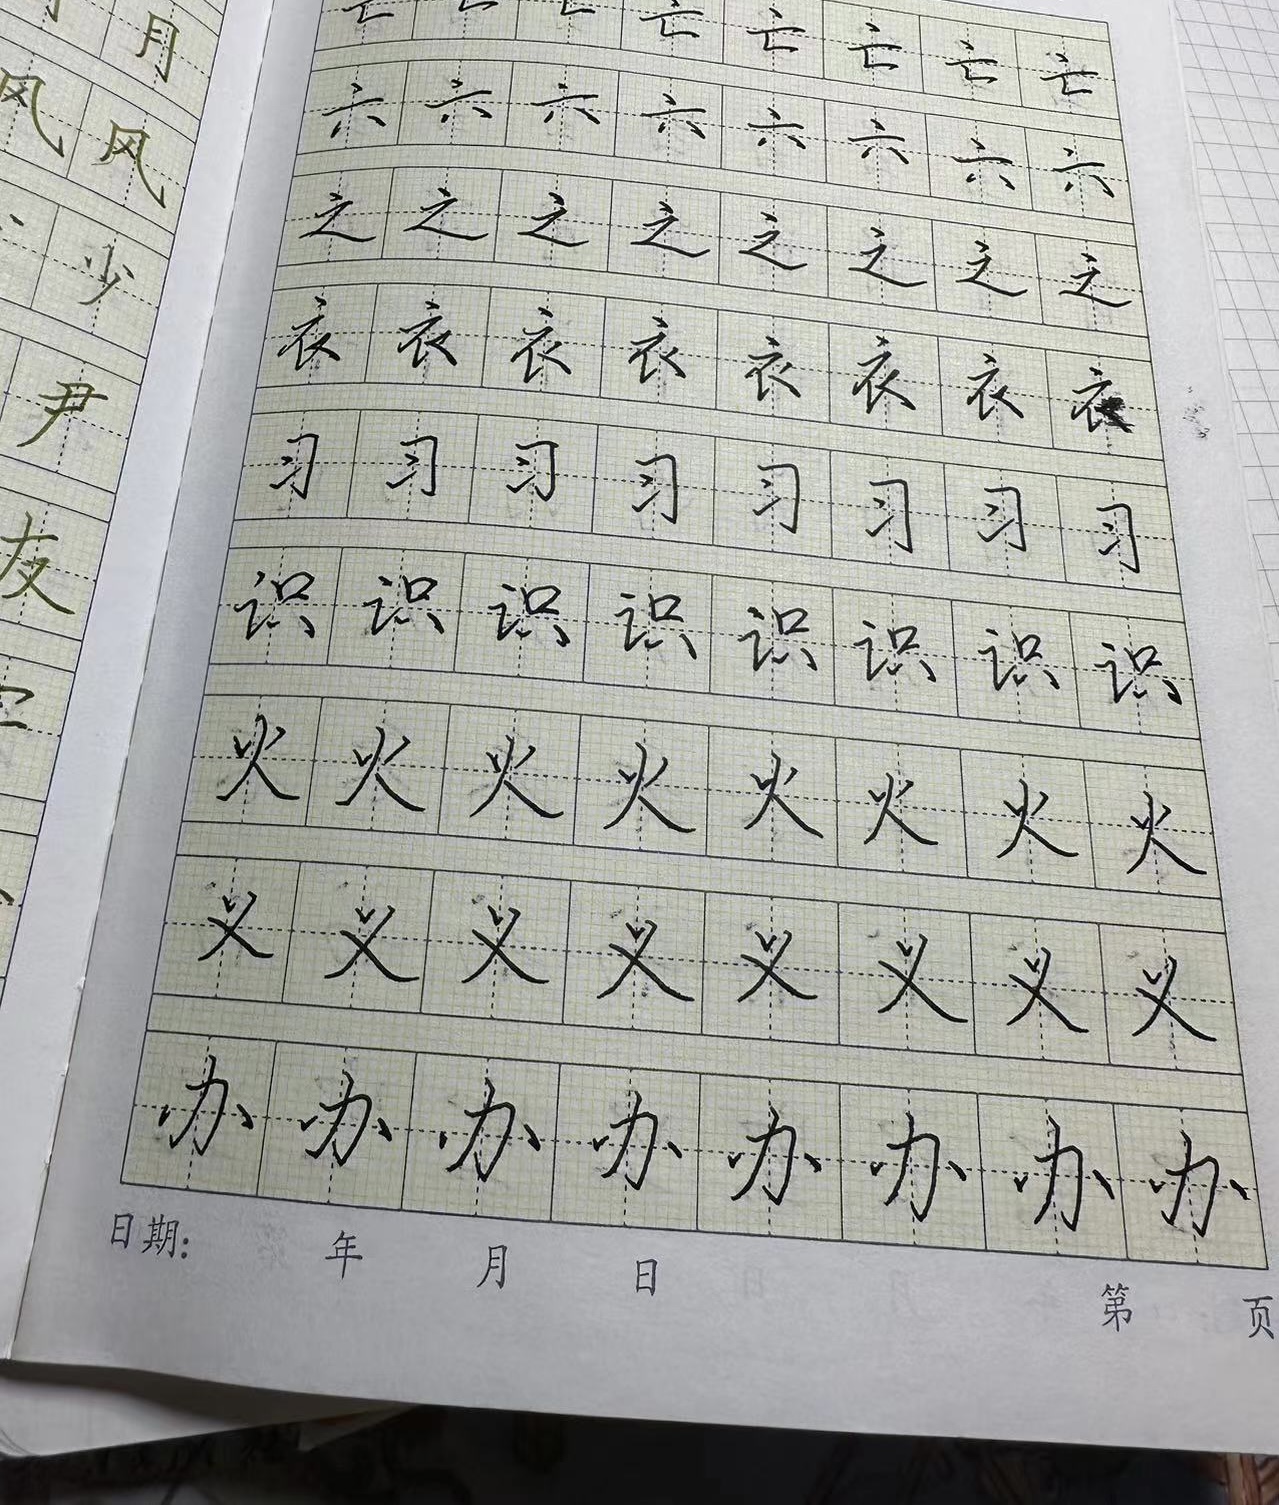 月
风 风
少
尹
友
亡 亡 亡 亡 亡 亡 亡 亡
六 六 六 六 六 六 六 六
之 之 之 之 之 之 之 之
衣 衣 衣 衣 衣 衣 衣 衣
习 习 习 习 习 习 习 习
识 识 识 识 识 识 识 识
火 火 火 火 火 火 火 火
义 义 义 义 义 义 义 义
办 办 办 办 办 办 办 办
日期: 年 月 日 第 页